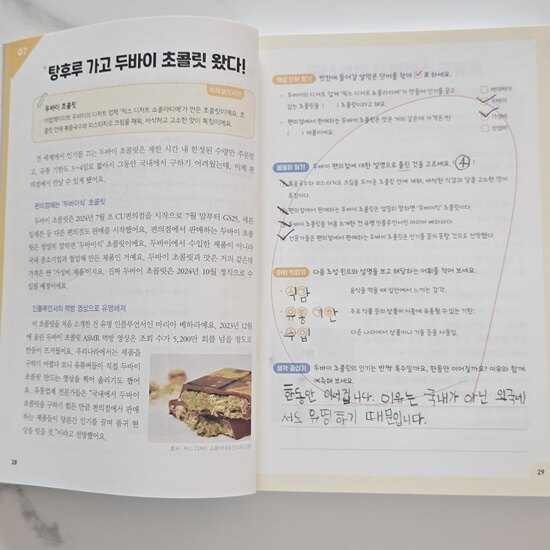 07
탕후루 가고 두바이 초콜릿 왔다!
두바이 초콜릿
아랍에미리트 두바이의 디저트 업체 '픽스 디저트 쇼콜라티에'가 만든 초콜릿이에요. 초
콜릿 안에 볶음국수와 피스타치오 크림을 채워, 바삭하고 고소한 맛이 특징이에요.
전 세계에서 인기를 끄는 두바이 초콜릿은 제한 시간 내 한정된 수량만 주문받
고, 유통 기한도 3~4일로 짧아서 그동안 국내에서 구하기 어려웠는데, 이제 편
의점에서 만날 수 있게 됐어요.
편의점에는 '두바이식' 초콜릿
두바이 초콜릿은 2024년 7월 초 CU편의점을 시작으로 7월 말부터 GS25, 세븐
일레븐 등 다른 편의점도 판매를 시작했어요. 편의점에서 판매하는 두바이 초콜
릿은 엄밀히 말하면 '두바이식' 초콜릿이에요. 두바이에서 수입한 제품이 아니라
국내 중소기업과 협업해 만든 제품인 거예요. 두바이 초콜릿과 맛은 거의 같은데
가격은 싼 '가성비 제품'이지요. 진짜 두바이 초콜릿은 2024년 10월 정식으로 수
입될 예정이에요.
인플루언서의 먹방 영상으로 유명해져
이 초콜릿을 처음 소개한 건 유명 인플루언서인 마리아 베하라예요. 2023년 12월
에 올린 두바이 초콜릿 ASMR 먹방 영상은 조회 수가 5,200만 회를 넘을 정도로
반응이 뜨거웠어요. 우리나라에서는 제품을
구하기 어렵다 보니 유튜버들이 직접 두바이
초콜릿을 만드는 영상을 찍어 올리기도 했어
요. 유통업계 전문가들은 "국내에서 두바이
초콜릿을 구하기 힘든 만큼 편의점에서 판매
하는 제품들이 당분간 인기를 끌며 품귀 현
상을 빚을 것."이라고 전망했어요.
출처 : 픽스 디저트 쇼콜라티에 인스타그램
28
핵심 단어 찾기 빈칸에 들어갈 알맞은 단어를 찾아 ✓표 하세요.
• 두바이의 디저트 업체 '픽스 디저트 쇼콜라티에'가 만들어 인기를 끌고
있는 초콜릿을 ( ) 초콜릿이라고 해요.
두바이
• 편의점에서 판매하는 두바이 초콜릿은 맛은 거의 같은데 가격은 싼
( ) 제품이에요.
가성비
두바이 편의점에 대한 설명으로 틀린 것을 고르세요. ( ④ )
볶음국수와 피스타치오 크림을 두꺼운 초콜릿 안에 채워, 바삭한 식감과 달콤 고소한 맛이
특징이다.
편의점에서 판매하는 두바이 초콜릿은 엄밀히 말하면 '두바이식' 초콜릿이다.
두바이 초콜릿을 처음 소개한 건 유명 인플루언서인 마리아 베하라다.
전문가들은 편의점에서 판매하는 두바이 초콜릿은 인기를 끌지 못할 것으로 전망했다.
어휘 익히기 다음 초성 힌트와 설명을 보고 해당하는 어휘를 적어 보세요.
식감 음식을 먹을 때 입안에서 느끼는 감각.
유통 기한 주로 식품 등의 상품이 시중에 유통될 수 있는 기한.
수입 다른 나라에서 상품이나 기술 등을 사들임.
두바이 초콜릿의 인기는 반짝 특수일까요, 한동안 이어질까요? 이유와 함께
예측해 보세요.
한동안 이어집니다. 이유는 국내가 아닌 외국에
서도 유명하기 때문입니다.
29